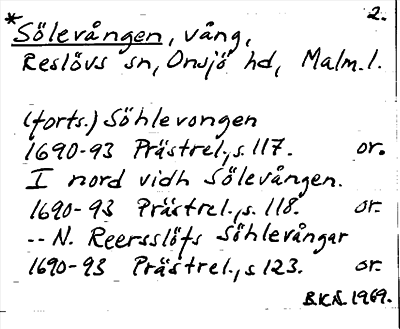 2.
*Sölevången, vång,
Reslövs sn, Onsjö hd, Malm. l.
(forts.) Söhlevongen
1690-93 Prästrel., s. 117. or.
I nord vidh Sölevången.
1690-93 Prästrel., s. 118. or.
-- N. Reersslöfs Söhlevångar
1690-93 Prästrel., s 123. or.
B.K.Å. 1969.